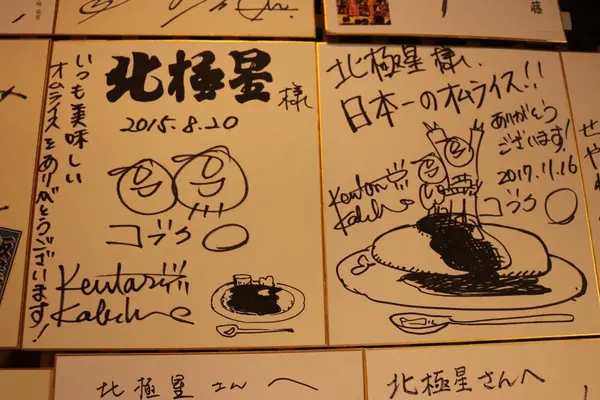 北極星様
2015.8.20
いつも美味しい
オムライスをありがとうございます!
コブク〇
Kentaro
北極星様
日本一のオムライス!!
ありがとう
ございます!
2017.11.16
Kentaro
コブク〇
藤
北極星さんへ
北極星さんへ